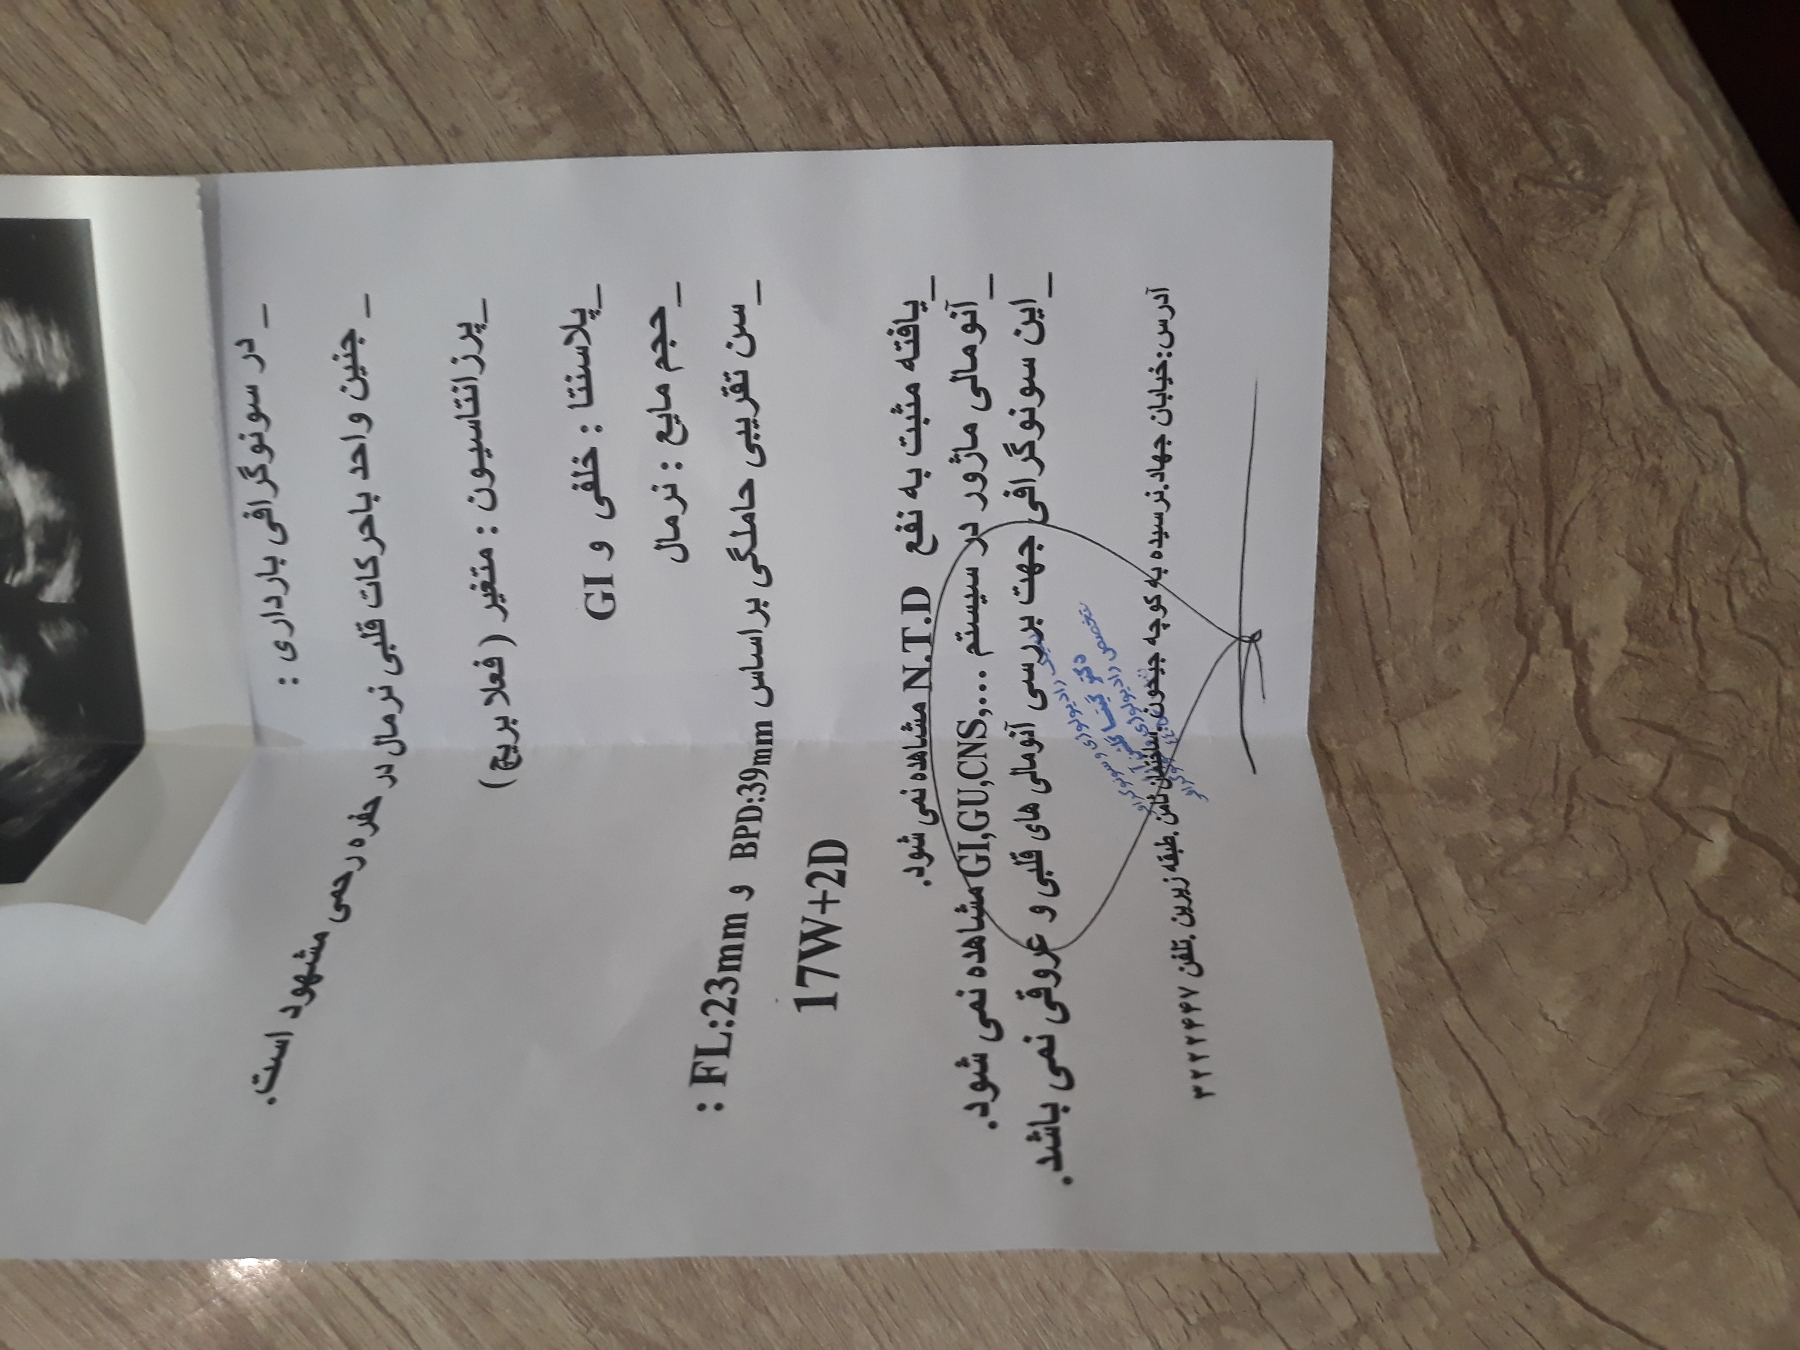 _ در سونوگرافی بارداری :
_ جنین واحد باحرکات قلبی نرمال در حفره رحمی مشهود است.
_پرزانتاسیون : متغیر ( فعلا بریچ)
_پلاسنتا : خلفی و GI
_حجم مایع : نرمال
_سن تقریبی حاملگی براساس BPD:39mm و FL:23mm :
17W+2D
_یافته مثبت به نفع N.T.D مشاهده نمی شود.
_ آنومالی ماژور در سیستم ...,GI,GU,CNS مشاهده نمی شود.
_این سونوگرافی جهت بررسی آنومالی های قلبی و عروقی نمی باشد.
آدرس:خیابان جهاد.نرسیده به کوچه جیحون.ساختمان ثامن.طبقه زیرین.تلفن ۳۲۲۲۴۴۷
دکتر
تخصص رادیولوژی